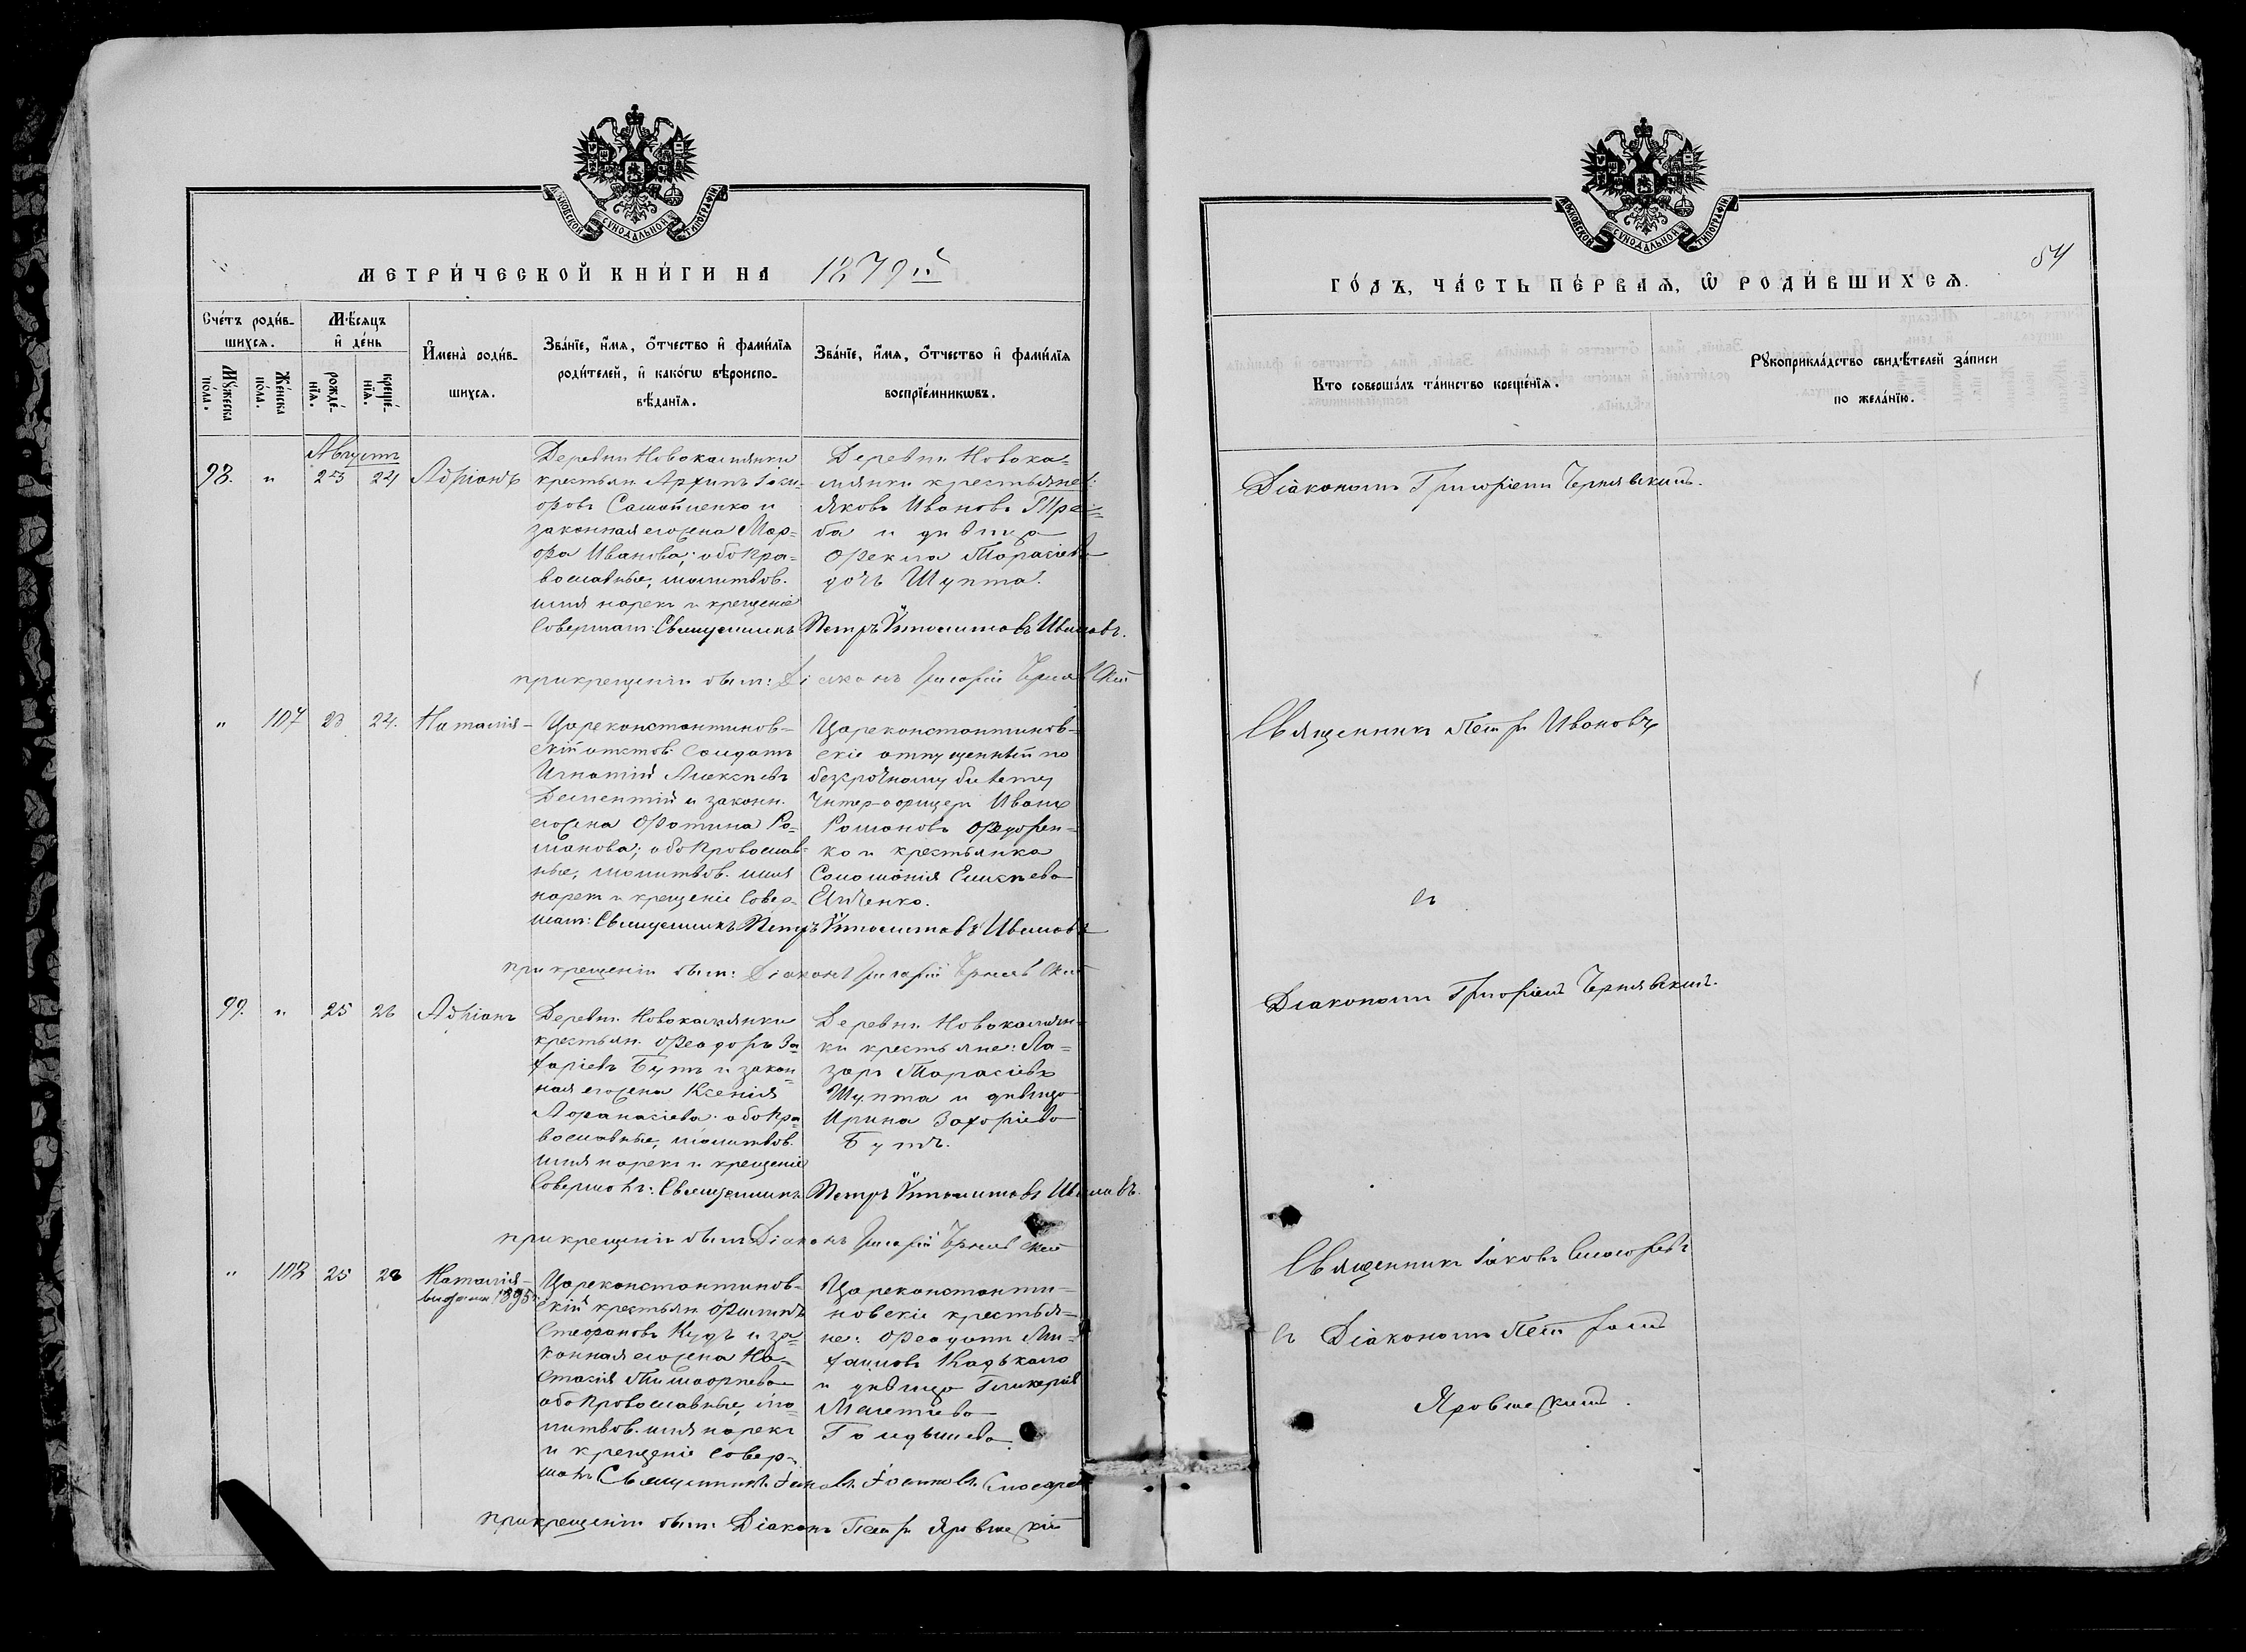 МОСКОВСКОЙ СѴНОДАЛЬНОЙ ТИПОГРАФІИ
МЕТРИ́ЧЕСКОЙ КНИ́ГИ НА 1879й
Сче́тъ роди́в-
шихся.
Мѣ́сяцъ
и҆ де́нь
Мꙋ́жеска
по́ла.
Же́нска
по́ла.
рожде́-
нїя.
креще́-
нїя.
И҆мена̀ роди́в-
шихся.
Зва́нїе, и҆́мя, ѻ҆́тчество и҆ фами́лїя
роди́телей, и҆ како́гѡ вѣроиспо-
вѣ́данїя.
Зва́нїе, и҆́мя, ѻ҆́тчество и҆ фами́лїя
воспрїе́мникѡвъ.
Августъ
98. " 23 24 Адріанъ
Деревни Новокамянки
крестьян. Архипъ
Самойленко и
законная его жена Мар-
фа Иванова; оба Пра-
вославные, молитвов.
имя нарек. и крещеніе
Совершал: Священникъ Петръ Ипполитовъ Ивановъ.
Деревни Новока-
мянки крестьяне:
Яковъ Ивановъ
ба и дѣвица
Фекла Тарасіева
дочь Шупта.
при крещеніи был: Діаконъ Григорій Чернявскій
" 107 23 24. Наталія
Цареконстантинов-
скій отстав. Солдатъ
Игнатій Алексѣевъ
Дементій и законн.
его жена Фотина Ро-
манова; оба Православ-
ные, молитвов. имя
нарек. и крещеніе Совер-
шал: Священникъ Петръ Ипполитовъ Ивановъ
Цареконстантинов-
скіе отпущенный по
безсрочному билету
Унтер-офицеръ Иванъ
Романовъ Федорен-
ко и крестьянка
Соломонія Елисѣева
при крещеніи был: Діаконъ Григорій Чернявскій
99. " 25 26 Адріанъ
Деревни Новокамянки
крестьян. Феодоръ За-
харіевъ Бутъ и закон-
ная его жена Ксенія
Афанасіева оба Пра-
вославные, молитвов.
имя нарек. и крещеніе
Совершалъ: Священникъ Петръ Ипполитовъ Ивановъ.
Деревни Новокамян-
ки крестьяне: Ла-
зарь Тарасіевъ
Шупта и дѣвица
Ирина Захаріева
Бутъ.
при крещеніи был Діаконъ Григорій Чернявскій
" 108 25 26 Наталія
1895
Цареконстантинов-
скій крестьян. Филиппъ
Стефановъ Кудь и за-
конная его жена На-
стасія Тимофеева
оба Православные, мо-
литвов. имя нарек.
и крещеніе совер-
шалъ Священникъ Іаковъ
Цареконстанти-
новскіе крестья-
не: Феодотъ Ми-
хаиловъ Кадькало
и дѣвица Гликерія
Мелетіева
при крещеніи был: Діаконъ Петръ
МОСКОВСКОЙ СѴНОДАЛЬНОЙ ТИПОГРАФІИ
54
ГО́ДЪ, ЧА́СТЬ ПЕ́РВАЯ, Ѽ РОДИ́ВШИХСЯ.
Кто соверша́лъ та́инство креще́нїя.
Рꙋкоприкла́дство свидѣ́телей за́писи
по жела́нїю.
Діакономъ Григоріемъ Чернявскимъ.
Священникъ Петръ Ивановъ
съ
Діакономъ Григоріемъ Чернявскимъ.
Священникъ Іаковъ
съ Діакономъ Петромъ